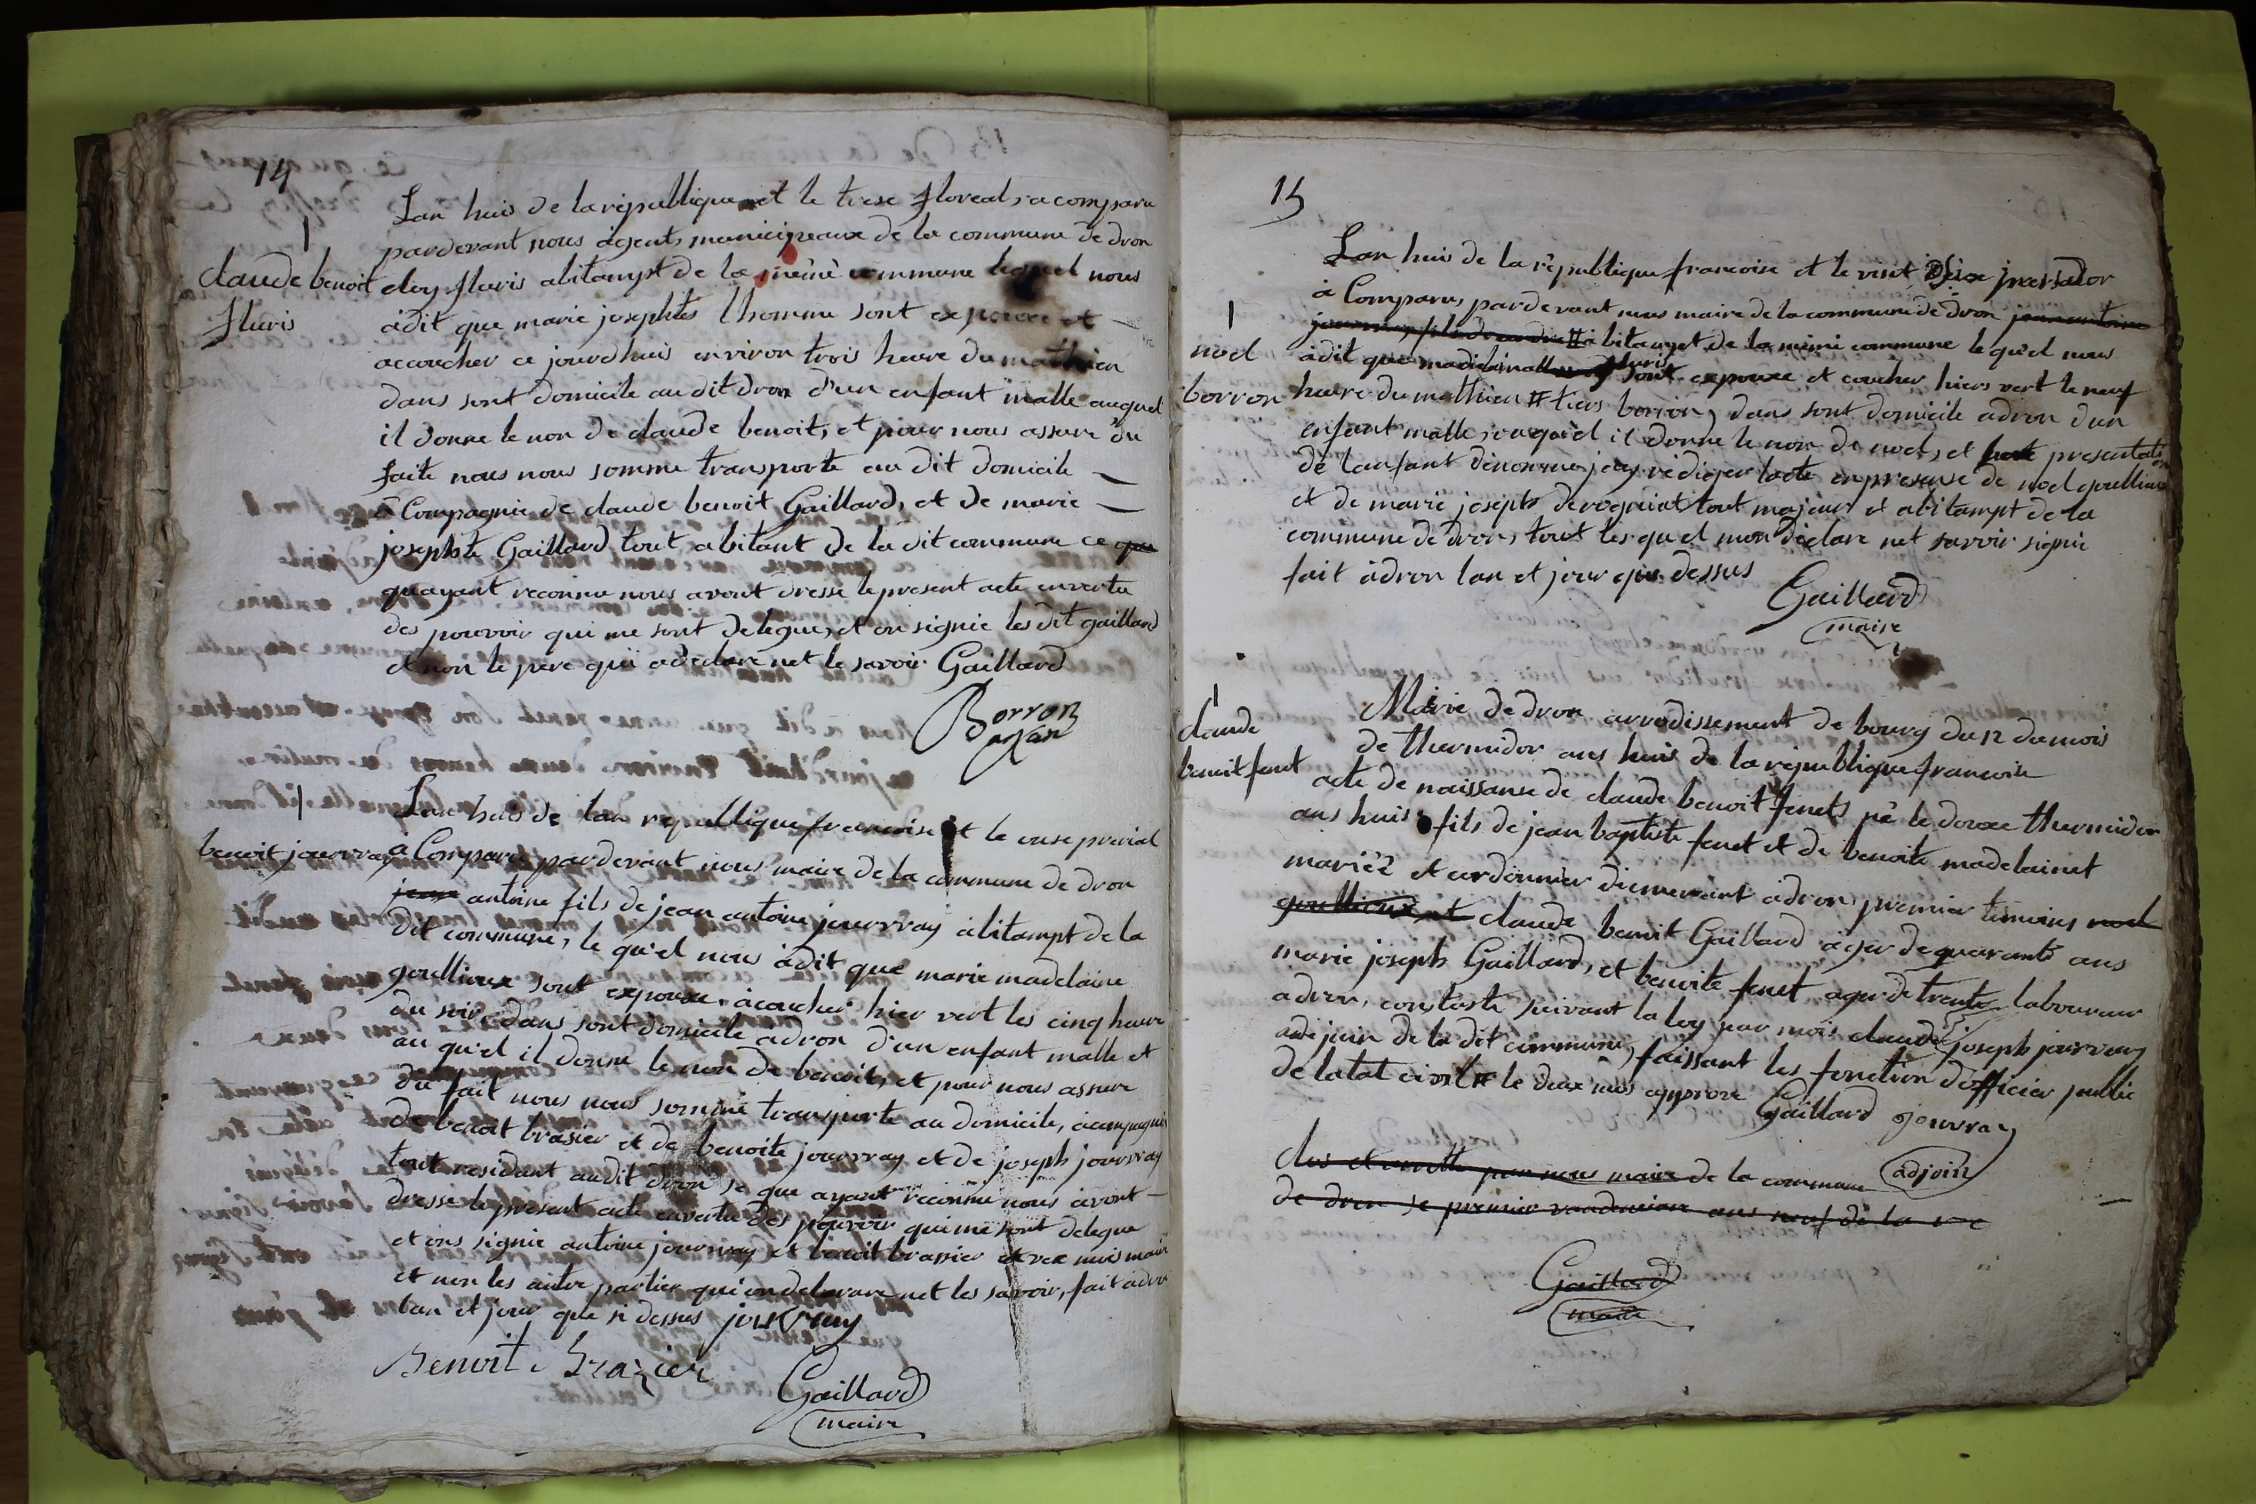 14
1
claude benoit
fluris
Lan huis de la republique et le trese floreal, a comparu
pardevant nous agent municipeaux de la commune de dron
eloy fluris abitampt de la même commune lequel nous
àdit que marie josephtes lhomme sont expouxe et
accoucher ce jourdhuis environ trois heure du mathien
dans sont domicile audit dron d'un enfant malle auquel
il donne le non de claude benoit, et pour nous assure du
faite nous nous somme transporte au dit domicile
à Compagnie de claude benoit Gaillard, et de marie
josephte Gaillard tout abitant de la dit commune ce que
quayant reconnu nous avont dresse le present acte envertu
des pouvoir qui me sont delegue, et on signie les dit gaillard
et non le pere qui adeclare net le savoir Gaillard
Borron
agan
1
benoit jourvray
Lan huis de lan republique francoise et le onse prerial
à Comparus pardevant nous maire de la commune de dron
jean antoine fils de jean antoine jourvray abitampt de la
dit commune, le qu'el nous àdit que marie madelaine
goullieux sont expouxe àcoucher hier vert les cinq heure
du soir dans sont domicile adron d'un enfant malle et
au qu'el il donne le non de benoit, et pour nous assure
du fait nous nous somme transporte au domicile, àcompagnie
de benoit brasier et de benoite jourvray et de joseph jourvray
tout residant audit dron se que ayant reconnu nous àvont
dresse le present acte envertu des pouvoir qui me sont delegue
et ons signie antoine jourvray et benoit brassier avec mois maire
et non les autre parties qui on delarare net les savoir, fait àdron
lan et jour que si dessus jourvray
Benoit Brazier
Gaillard
maire
15
1
noel
borron
Lan huis de la république francoise et le vint deux prerador
à Comparus, pardevant nous maire de la commune de dron jean antoine
jourvray fils de andre # abitampt de la mimi commune le qu'el nous
àdit que madelaine fluris sont expouxe et coucher hiers vert le neuf
heure du mathien # tiers borron, dans sont domicile adron dun
enfant malle, auquel il donne le non de noel, et presentation
de lanfant denomme jay rediger lacte en presense de noel goullieux
et de marie joseph derognat tout majeur et abitampt de la
commune de dron, tout les quel mon declare net savoir signie
fait àdron lan et jour que dessus
Gaillard
maire
1
claude
benoit fenet
Mairie de dron arrodissement de bourg du 12 du mois
de thermidor ans huis de la republique francoise
acte de naissanse de claude benoit fenet, né le douxe thermidor
ans huis fils de jean baptiste fenet et de benoite madelainet
mariéz et cordonnier demeurant àdron, premier temoins noel
goullieux et claude benoit Gaillard àger de quarante ans
marie joseph Gaillard, et benoite fenet ager de trente laboureur
adron, constaste suivant la loy par mois claude joseph jourvray
adejoin de la dit commune, faissant les fonction d'officier public
de letat civil # le deux mos approve Gaillard jourvray
adjoin
clos et arrette par nous maire de la commune
de dron se premier vandemiare ans neuf de la re
Gaillard
maire